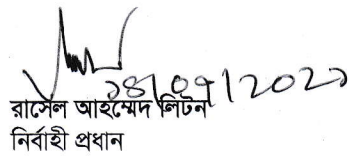 ১৪/০৭/২০২১
রাসেল আহম্মেদ লিটন
নির্বাহী প্রধান